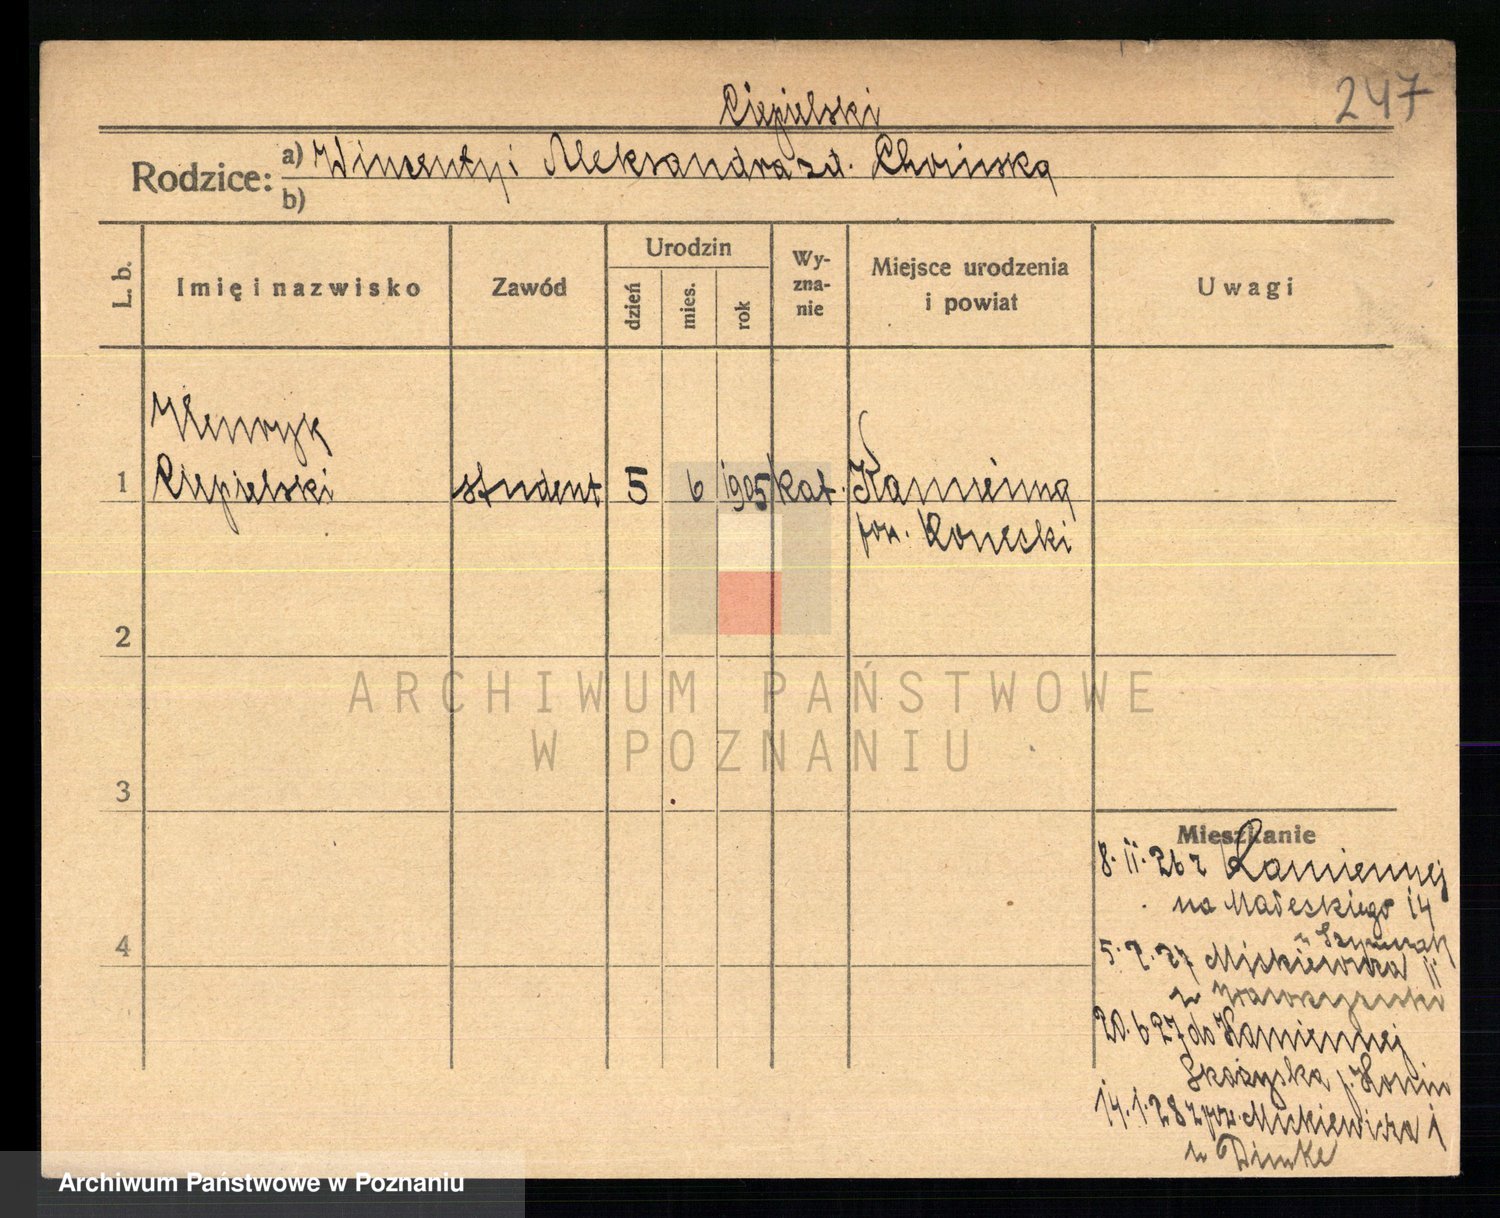 247
Ciepielski
Rodzice: a) Wincenty i Aleksandra zd. Choińska
b)
L. b. Imię i nazwisko Zawód Urodzin dzień mies. rok Wyznanie Miejsce urodzenia i powiat Uwagi
Henryk
1 Ciepielski student 5 6 1905 kat. Kamienna
pow. Konecki
2
ARCHIWUM PAŃSTWOWE
W POZNANIU
3
Mieszkanie
8. 11. 26 z Kamiennej
na Małeckiego 14
u Szymczak
4
5. 2. 27 Mickiewicza 11
u
20. 6 27 do Kamiennej
14. 1. 28 z Mickiewicza 1
u Dimke
Archiwum Państwowe w Poznaniu